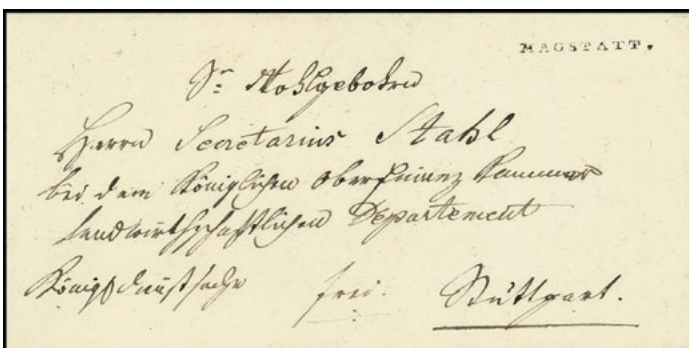 MAGSTATT.
Sr: Wohlgebohrn
Herrn Secretarius Stahl
bei dem Königlichen Oberfinanz Kammer
landwirthschaftlichen Departement
Königs dienstsache frei. Stuttgart.